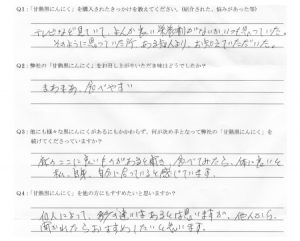 Q1：「甘熟黒にんにく」を購入されたきっかけを教えてください。(紹介された、悩みがあった等)
テレビなど見ていて、なんか良い栄養剤がないかいつも思っていた。
そのように思っていた所、ある知人より、お知えていただいた。
Q2：弊社の「甘熟黒にんにく」をお召し上がりいただき味はどうでしたか？
まあまあ、食べやすい
Q3：他にも様々な黒にんにくがあるにもかかわらず、何が決め手となって弊社の「甘熟黒にんにく」を
続けてくださっていますか？
私自身、自分に合っていると感じています。
Q4：「甘熟黒にんにく」を他の方にもすすめたいと思いますか？
個人によって、多少の違いはあるとは思いますが、他人から
聞かれたらおすすめしたいと思います。